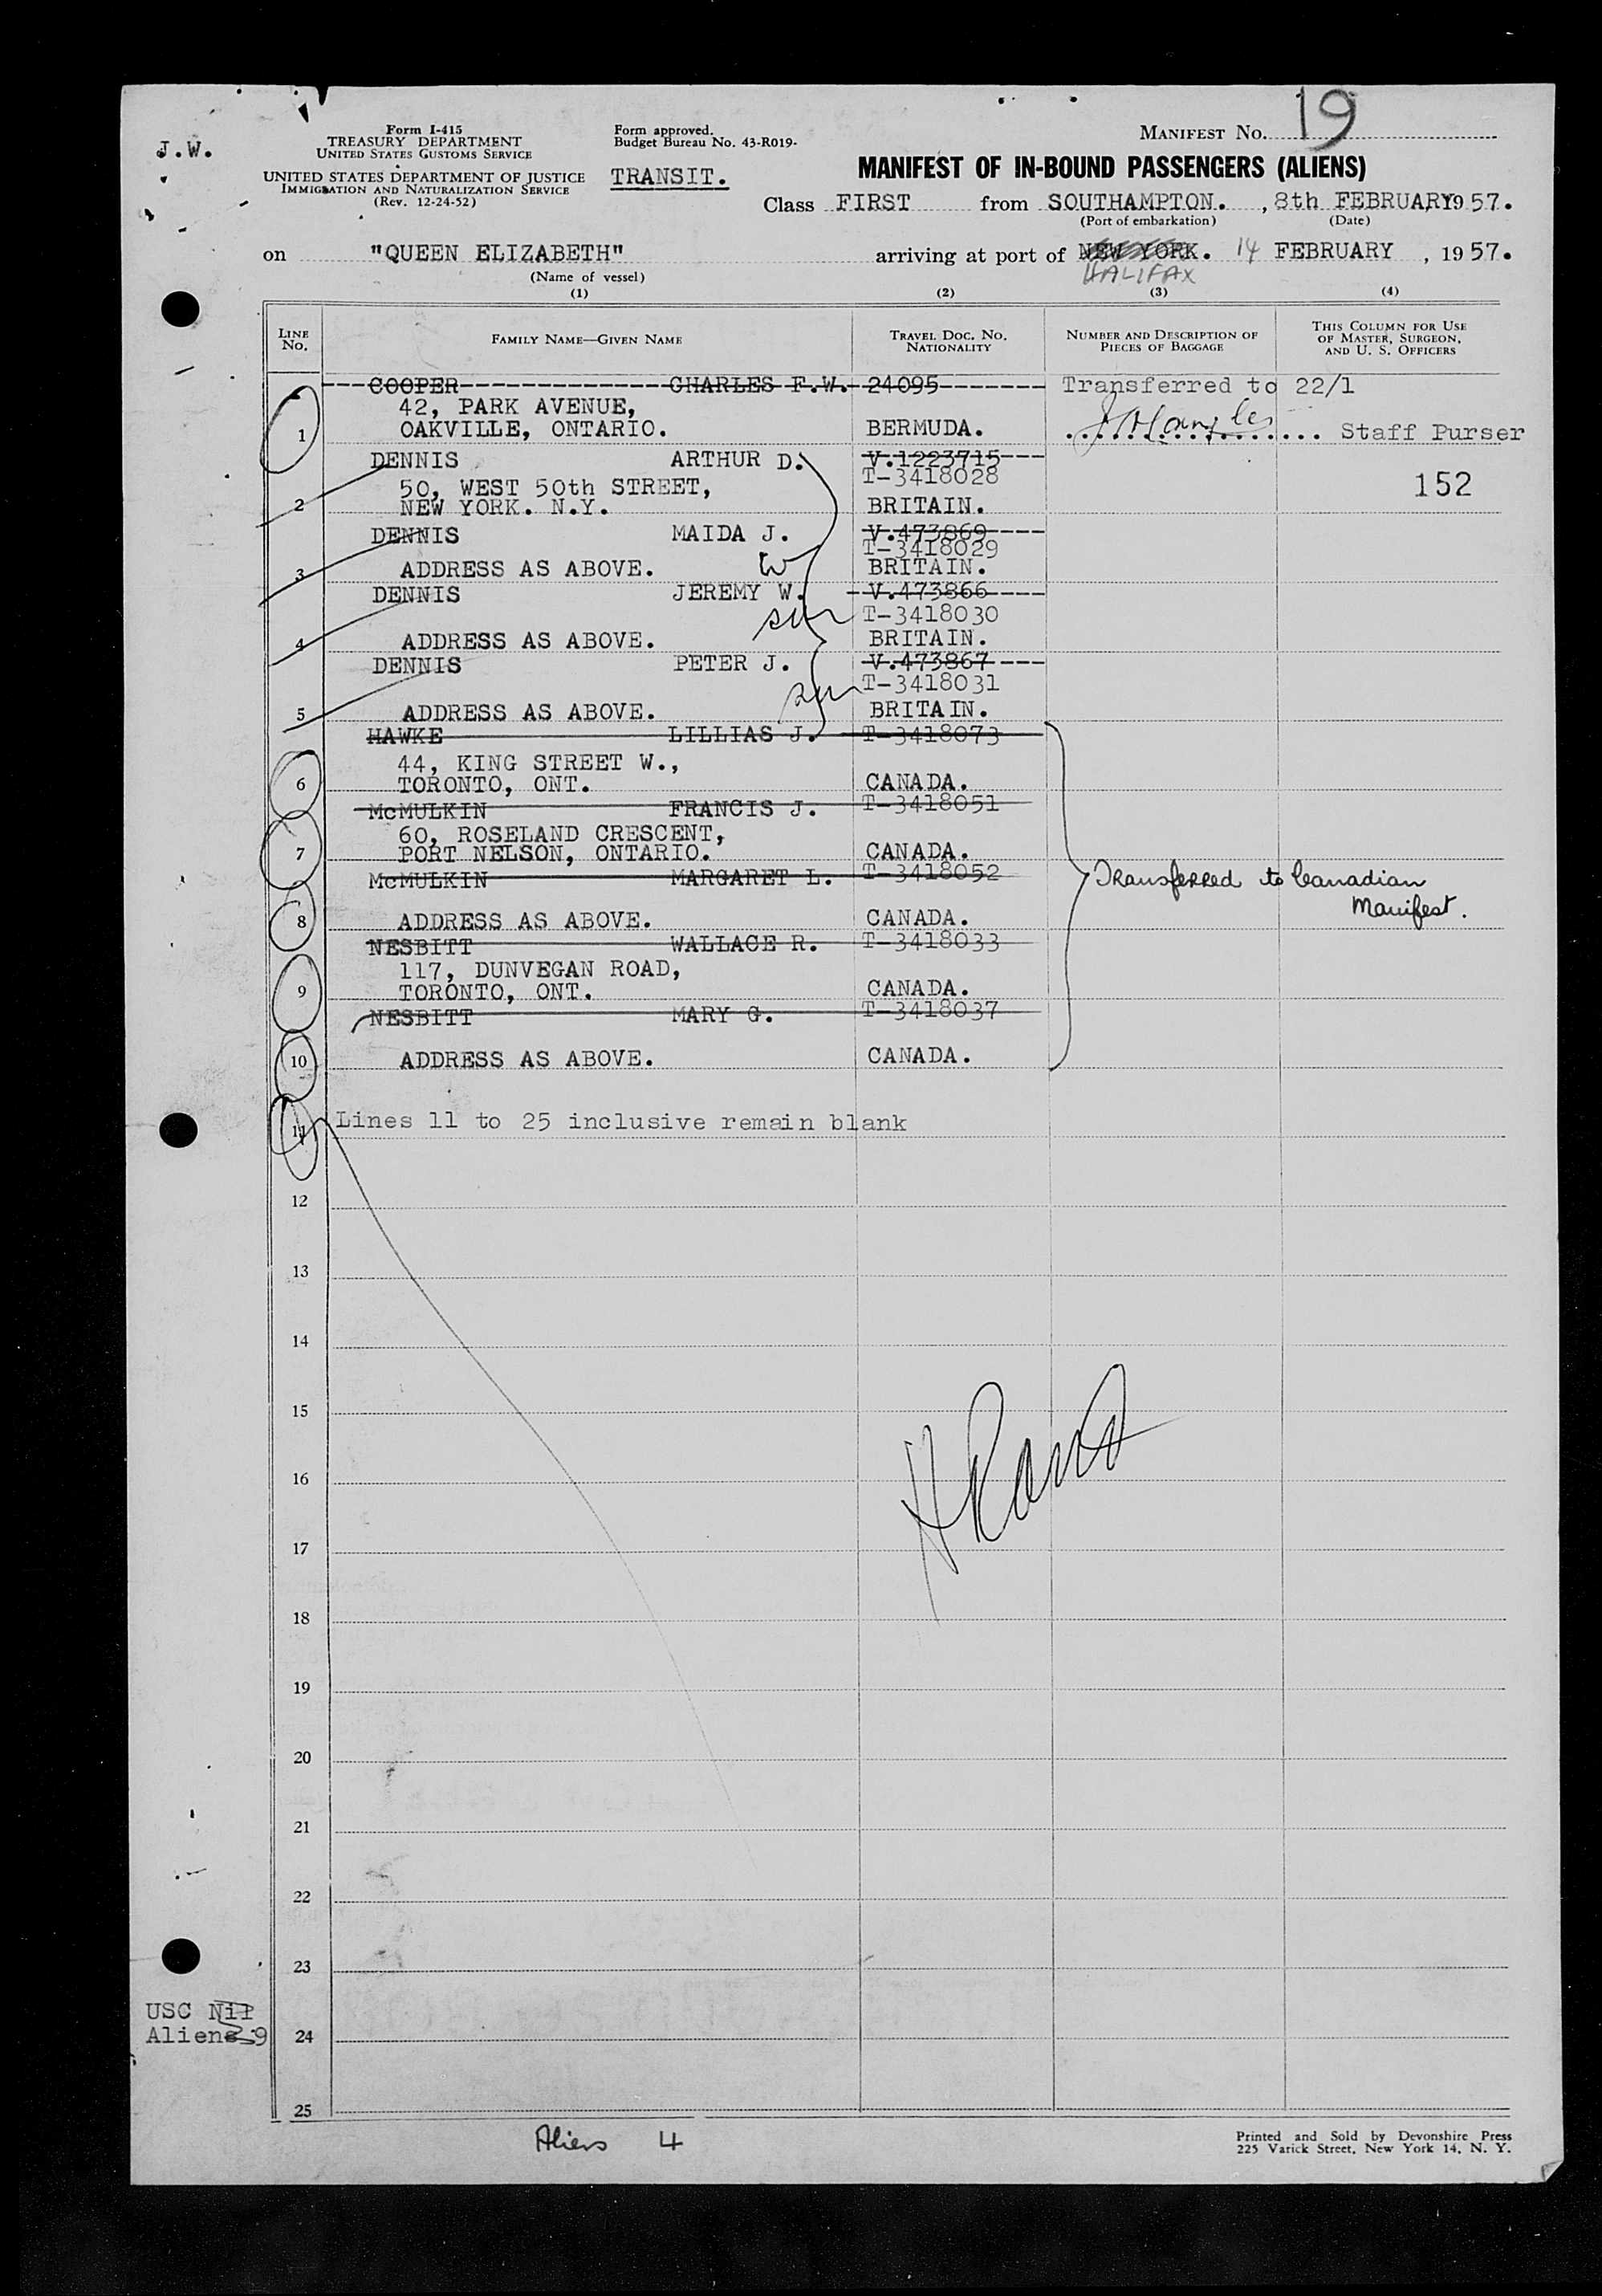 19
J.W.
Form I-415
TREASURY DEPARTMENT
UNITED STATES CUSTOMS SERVICE
UNITED STATES DEPARTMENT OF JUSTICE
IMMIGRATION AND NATURALIZATION SERVICE
(Rev. 12-24-52)
Form approved.
Budget Bureau No. 43-R019-
TRANSIT.
MANIFEST NO.
MANIFEST OF IN-BOUND PASSENGERS (ALIENS)
Class FIRST from SOUTHAMPTON. , 8th FEBRUARY 1957.
(Port of embarkation) (Date)
on "QUEEN ELIZABETH" arriving at port of NEW YORK. 14 FEBRUARY , 1957.
HALIFAX
(Name of vessel)
(1) (2) (3) (4)
LINE NO. FAMILY NAME—GIVEN NAME TRAVEL DOC. NO. NATIONALITY NUMBER AND DESCRIPTION OF PIECES OF BAGGAGE THIS COLUMN FOR USE OF MASTER, SURGEON, AND U. S. OFFICERS
COOPER CHARLES F.W. 24095 Transferred to 22/1
42, PARK AVENUE,
1 OAKVILLE, ONTARIO. BERMUDA. Staff Purser
DENNIS ARTHUR D. V.1223715
T-3418028
50, WEST 50th STREET, 152
2 NEW YORK. N.Y. BRITAIN.
DENNIS MAIDA J. V.473869
T-3418029
3 ADDRESS AS ABOVE. W BRITAIN.
DENNIS JEREMY W. V.473866
son T-3418030
4 ADDRESS AS ABOVE. BRITAIN.
DENNIS PETER J. V.473867
son T-3418031
5 ADDRESS AS ABOVE. BRITAIN.
HAWKE LILLIAS J. T-3418073
44, KING STREET W.,
6 TORONTO, ONT. CANADA.
McMULKIN FRANCIS J. T-3418051
60, ROSELAND CRESCENT,
7 PORT NELSON, ONTARIO. CANADA.
McMULKIN MARGARET L. T-3418052
Transferred to Canadian
Manifest.
8 ADDRESS AS ABOVE. CANADA.
NESBITT WALLACE R. T-3418033
117, DUNVEGAN ROAD,
9 TORONTO, ONT. CANADA.
NESBITT MARY G. T-3418037
10 ADDRESS AS ABOVE. CANADA.
11 Lines 11 to 25 inclusive remain blank
12
13
14
15
16
17
18
19
20
21
22
23
USC Nil
Aliens 9
24
25
Aliens 4
Printed and Sold by Devonshire Press
225 Varick Street, New York 14, N. Y.